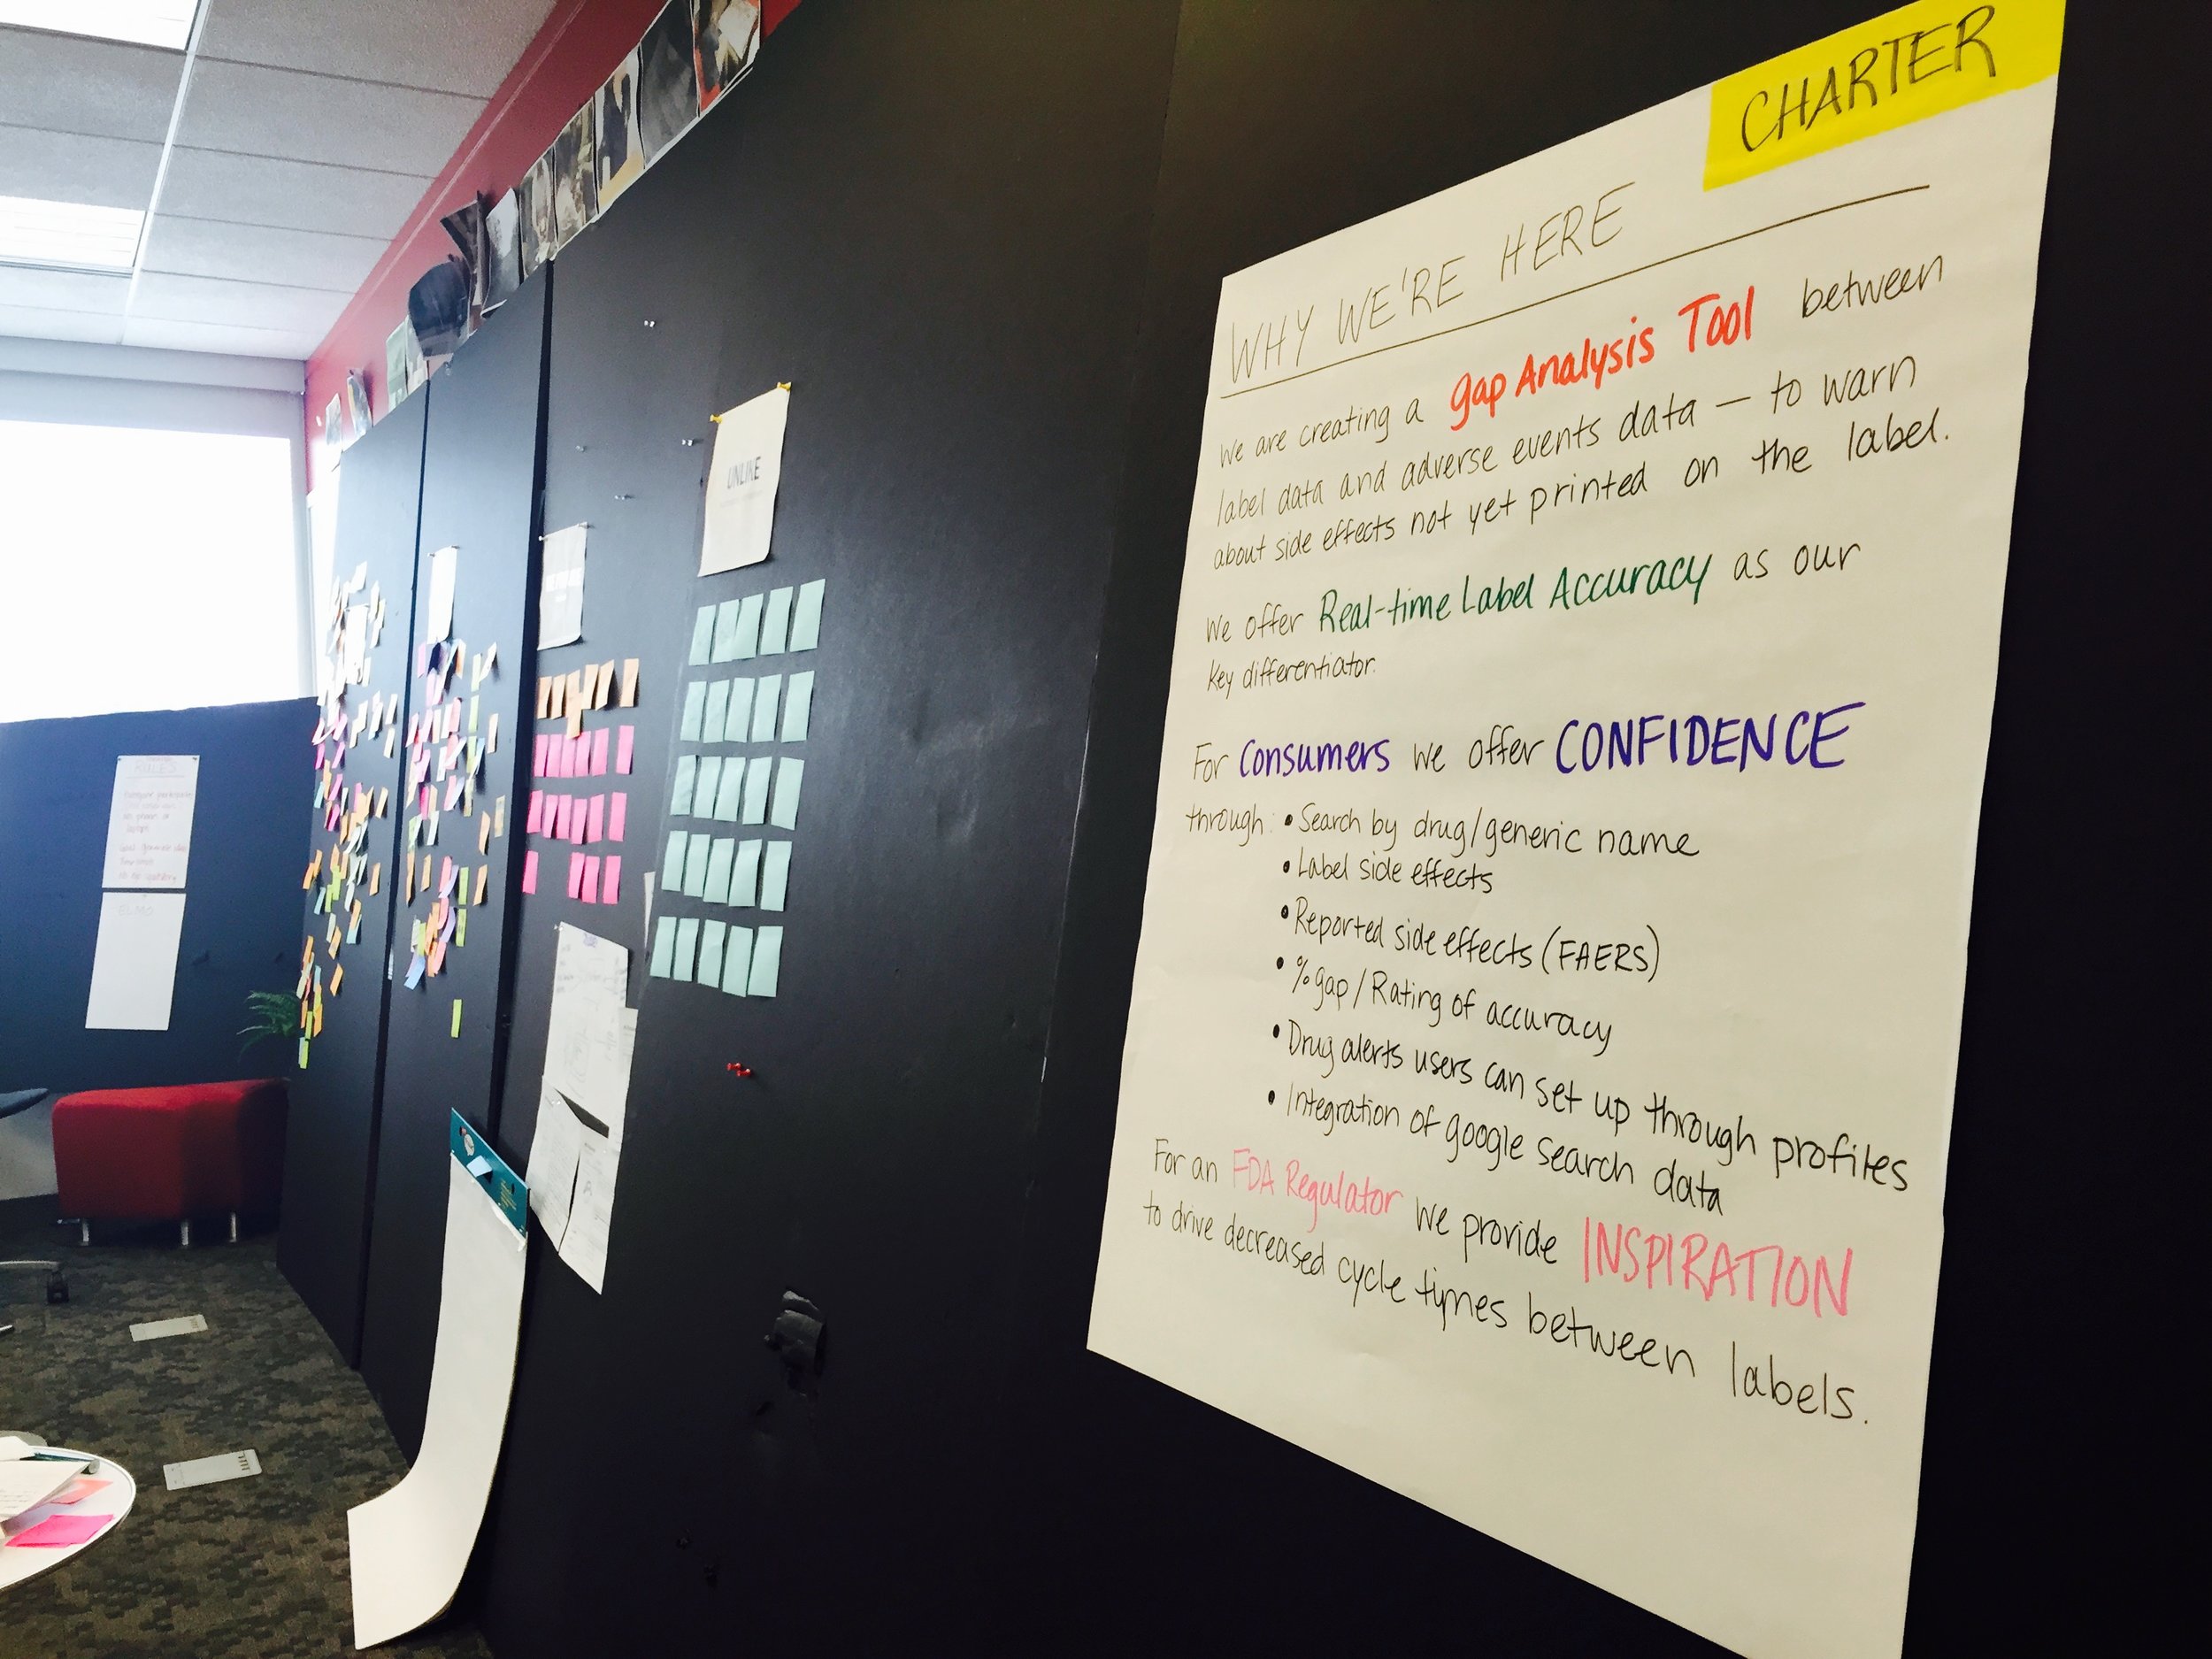 CHARTER
WHY WE'RE HERE
We are creating a gap Analysis Tool between
label data and adverse events data — to warn
about side effects not yet printed on the label.
We offer Real-time Label Accuracy as our
key differentiator.
For Consumers we offer CONFIDENCE
through: • Search by drug/generic name
• Label side effects
• Reported side effects (FAERS)
• % gap / Rating of accuracy
• Drug alerts users can set up through profiles
• Integration of google search data
For an FDA Regulator we provide INSPIRATION
to drive decreased cycle times between labels.
UNLIKE
RULES
ELMO